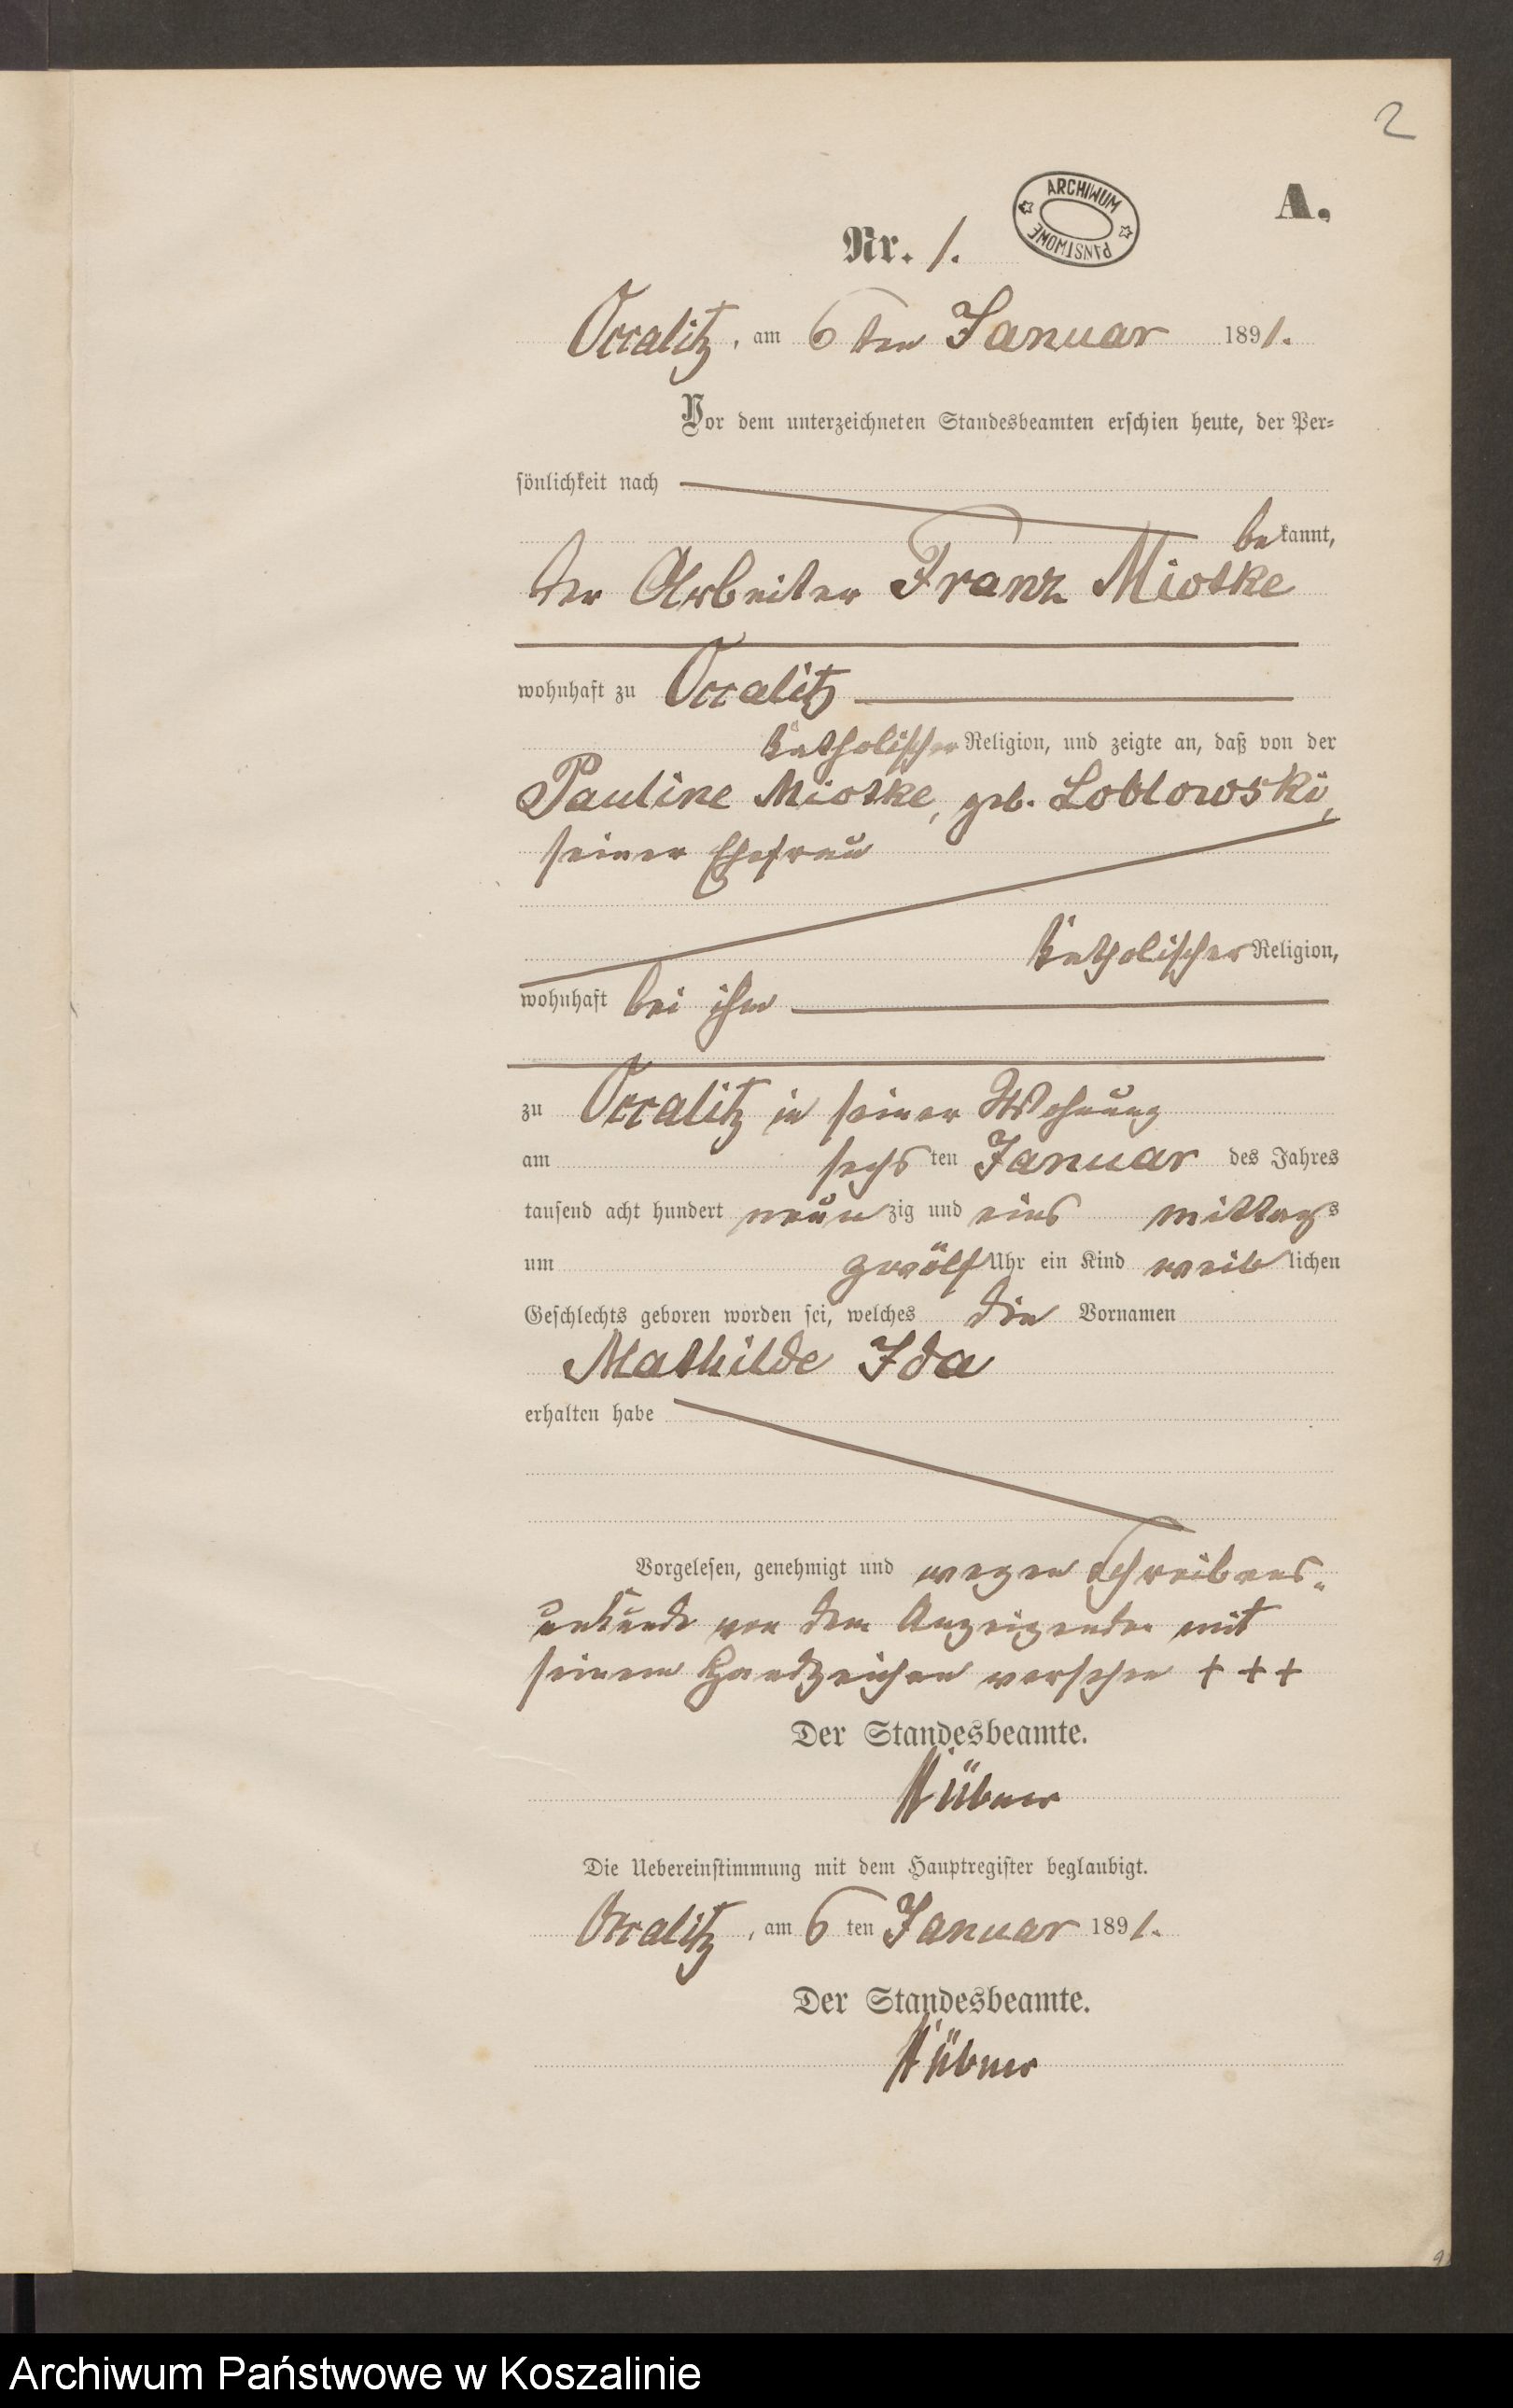 2
ARCHIWUM PAŃSTWOWE
A.
Nr. 1.
Occalitz, am 6 ten Januar 1891.
Vor dem unterzeichneten Standesbeamten erschien heute, der Per-
sönlichkeit nach
bekannt,
der Arbeiter Franz Mioske
wohnhaft zu Occalitz
katholischer Religion, und zeigte an, daß von der
Pauline Mioske, geb. Loblowski,
seiner Ehefrau
katholischer Religion,
wohnhaft bei ihm
zu Occalitz in seiner Wohnung
am sechsten Januar des Jahres
tausend acht hundert neunzig und eins mittags
um zwölf Uhr ein Kind weiblichen
Geschlechts geboren worden sei, welches die Vornamen
Mathilde Ida
erhalten habe
Vorgelesen, genehmigt und wegen Schreibens-
unkunde von dem Anzeigenden mit
seinem Handzeichen versehen + + +
Der Standesbeamte.
Hübner
Die Uebereinstimmung mit dem Hauptregister beglaubigt.
Occalitz, am 6 ten Januar 1891.
Der Standesbeamte.
Hübner
Archiwum Państwowe w Koszalinie